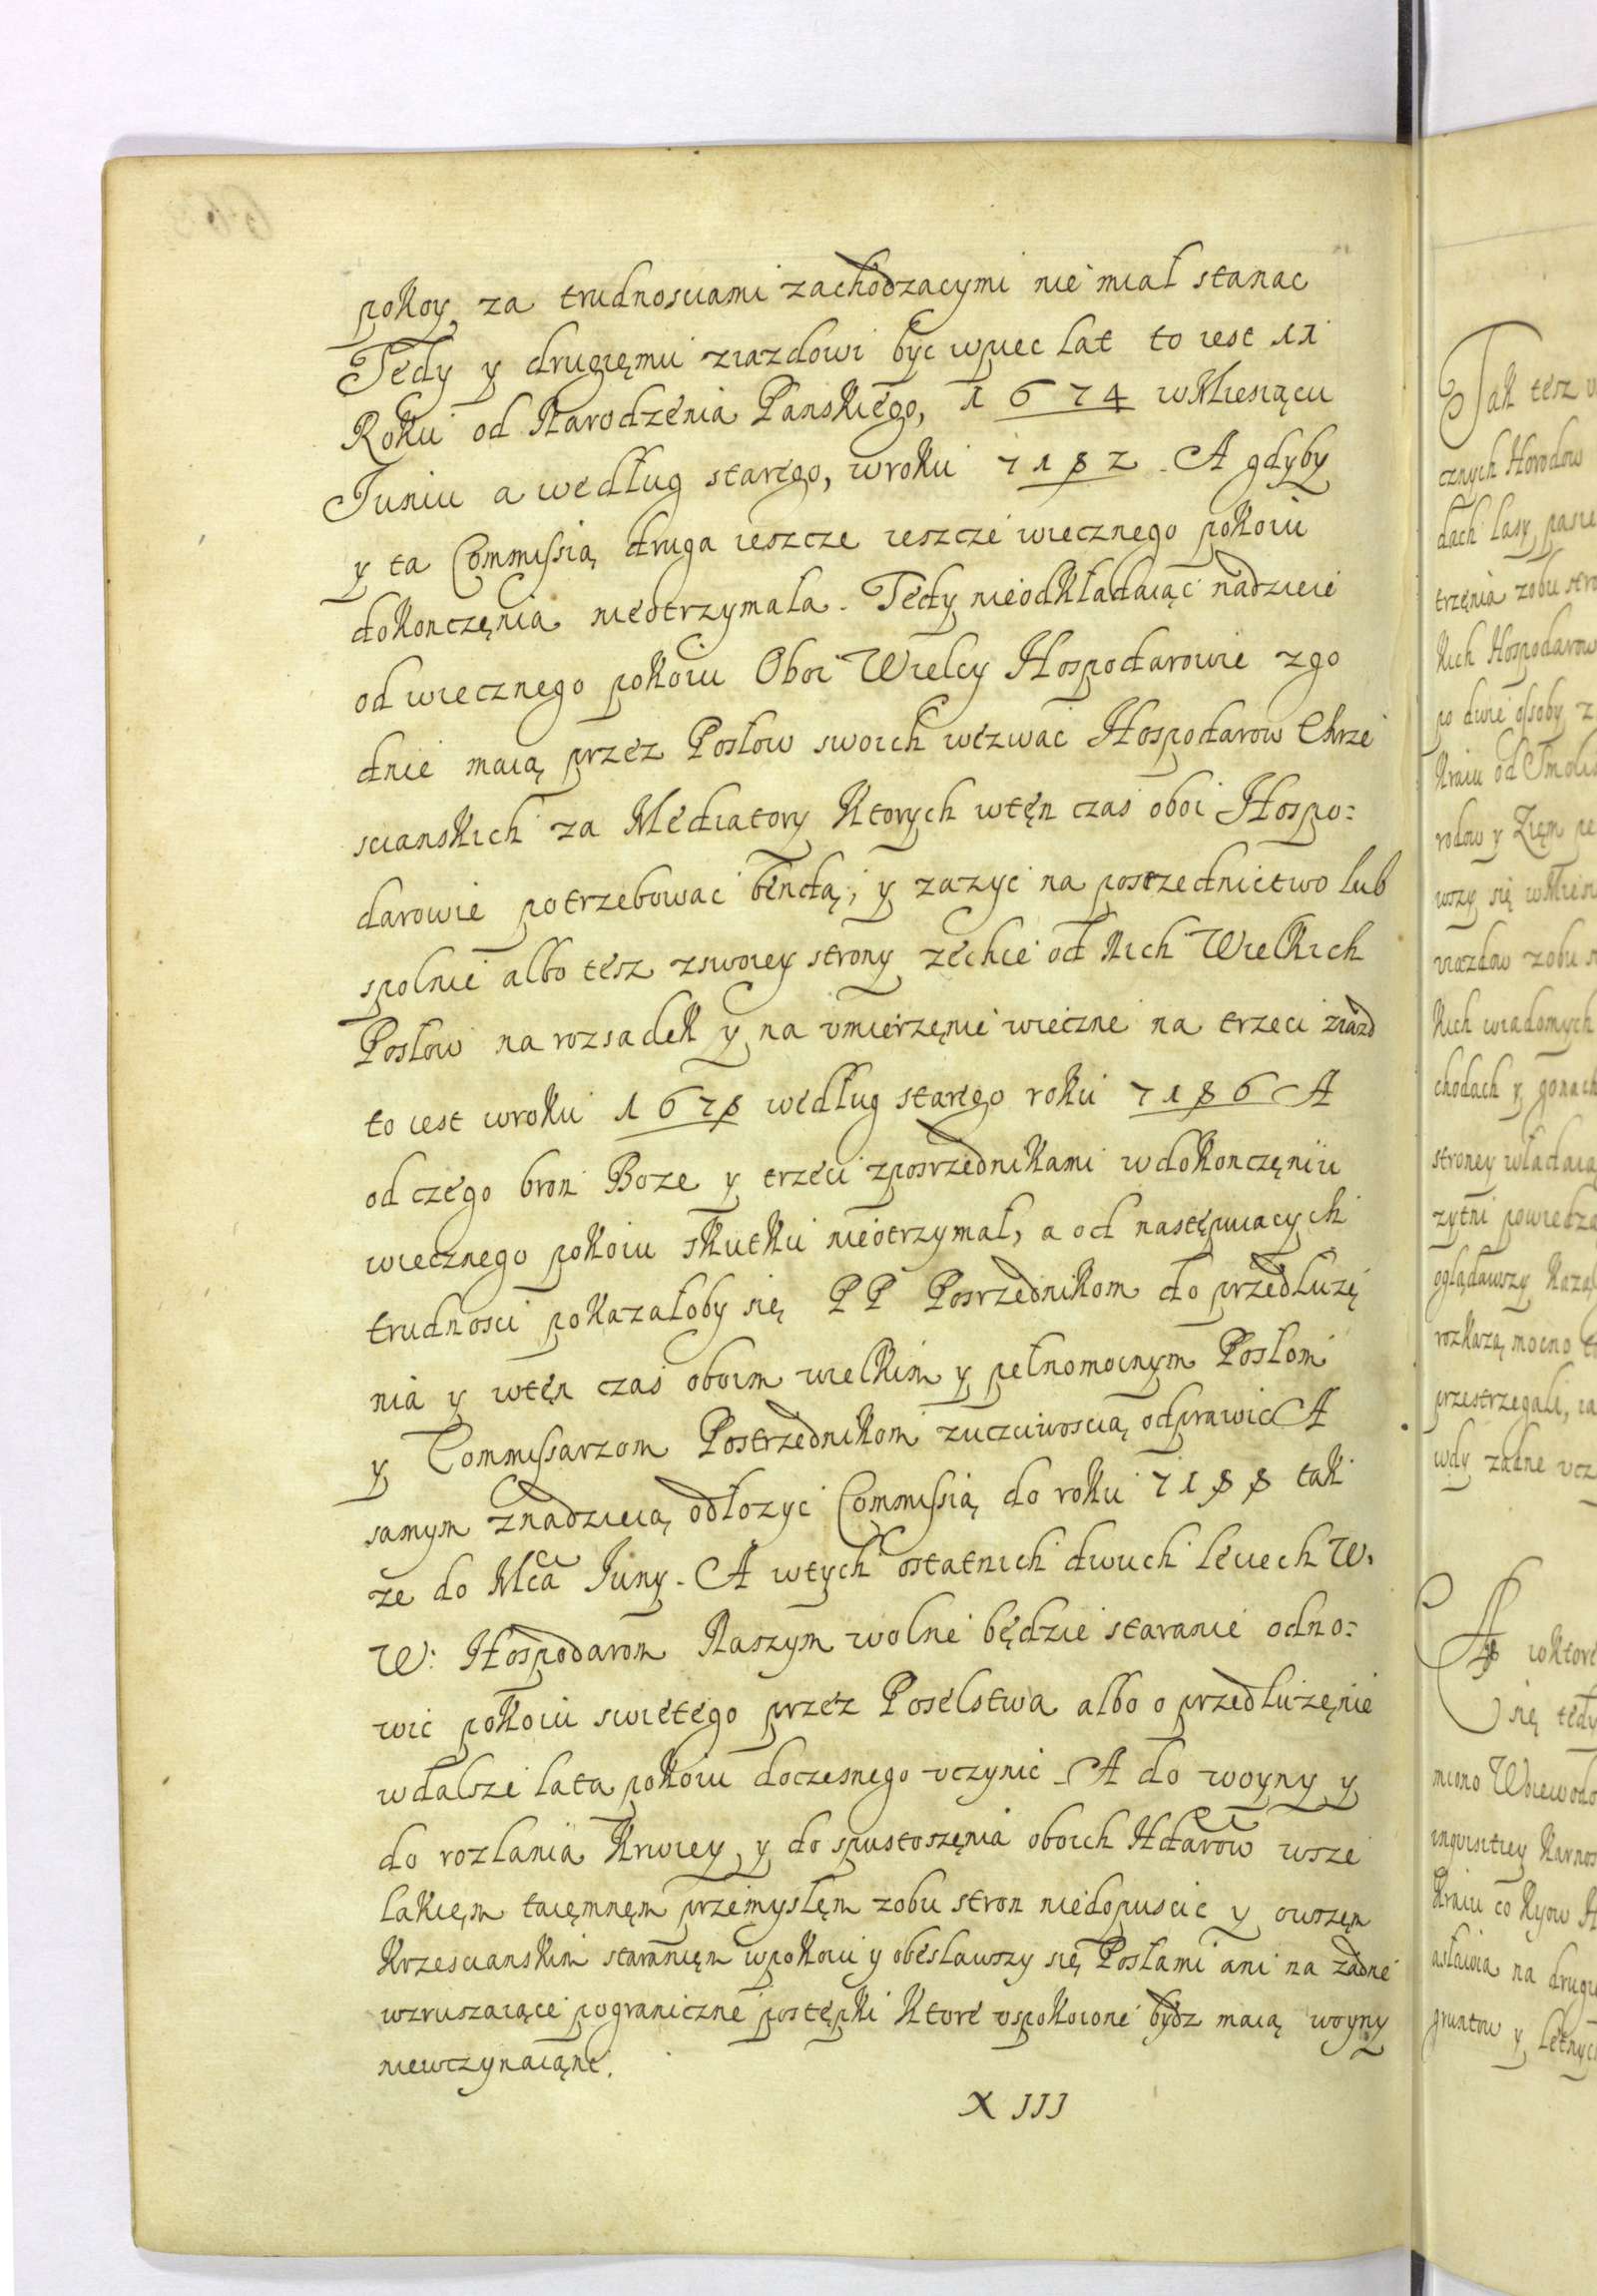 pokoy, za trudnosciami zachodzacymi nie miał stanac
Tedy y drugięmu ziazdowi byc wpiec lat to iest 11
Roku od Narodzenia Panskiego, 1674 wMiesiącu
Juniu a według starego, wroku 7182. A gdyby
y ta Commissia, druga ieszcze ieszcze wiecznego pokoiu
dokonczęnia nieotrzymala. Tedy nieodkładaiąc nadzieie
od wiecznego pokoiu Oboi Wielcy Hospodarowie zgo
dnie maią przez Posłow swoich wezwac Hospodarow Chrze
scianskich za Mediatory Ktorych wtęn czas oboi Hospo:
darowie potrzebowac bendą, y zazyc na posrzednictwo lub
spolnie albo tesz zswoiey strony zechcie od Nich Wielkich
Posłow na rozsadek y na vmierzęnie wieczne na trzeci ziazd
to iest wroku 1678 według starego roku 7186 A
od czego bron Boze y trzeci zposrzednikami wdokonczęniu
wiecznego pokoiu skutku nieotrzymał, a od następuiacych
trudnosci pokazałoby się PP Posrzednikom do przedluzę
nia y wtęn czas oboim wielkim y pełnomocnym Posłom
y Commissarzom Postrzednikom zuczciwoscią odprawic A
samym znadzieią, odłozyc Commissią do roku 7188 tak
ze do Mca Juny. A wtych ostatnich dwuch leciech W.
W: Hospodarom Naszym wolne będzie staranie odno:
wic pokoiu swietego przez Poselstwa albo o przedluzęnie
wdalsze lata pokoiu doczesnego vczynic. A do woyny y
do rozlania Krwiey y do spustoszęnia oboich Hdarow wsze
lakięm taięmnęm przemyslęm zobu stron niedopuscic y owszęm
Krzescianskim staranięm wpokoiu y obeslawszy się Posłami ani na zadne
wzruszaiące pograniczne postępki Ktore vspokoione bydz maią woyny
niewczynaiąne.
XIII
Tak tesz
cznych Horodow
dach lasy,
trzęnia zobu
kich Hospodarow
po dwie osoby z
Kraiu od
rodow y Zięm
wszy się
ziazdow zobu
Nich wiadomych
chodach y gonach
stroney
zytni
oglądawszy
rozkażą mocno
przestrzegali,
wdy zadne
A wktore
się tedy
miono
Kraiu co Kyow
na
gruntow y